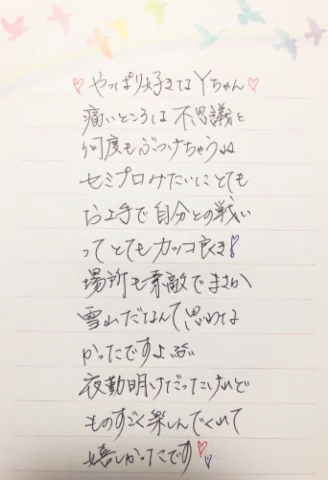 ♡やっぱり好きなYちゃん♡
痛いところは不思議と
何度もぶつけちゃうね
セミプロみたいにとても
お上手で自分との戦い
ってとてもカッコ良き!
場所も素敵でまさか
雪山だなんて思わな
かったですよ
夜勤明けだったけれど
ものすごく楽しんでくれて
嬉しかったです♡♡